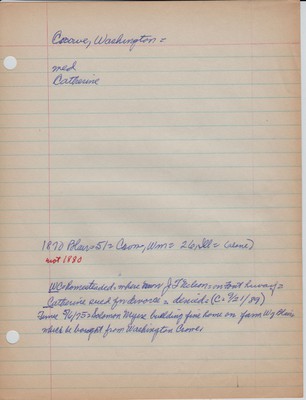 Crave, Washington =
med
Catherine
1870 Blair = 51 = Crow, Wm = 26, Ill = (line)
not 1880
WC homesteaded, where now J F Nelson = on Fort
Catherine sued for divorce = denied = (C = 9/21/
Time 5/6/75 = Solomon Myers building fine home on farm
which he bought from Washington Crow.